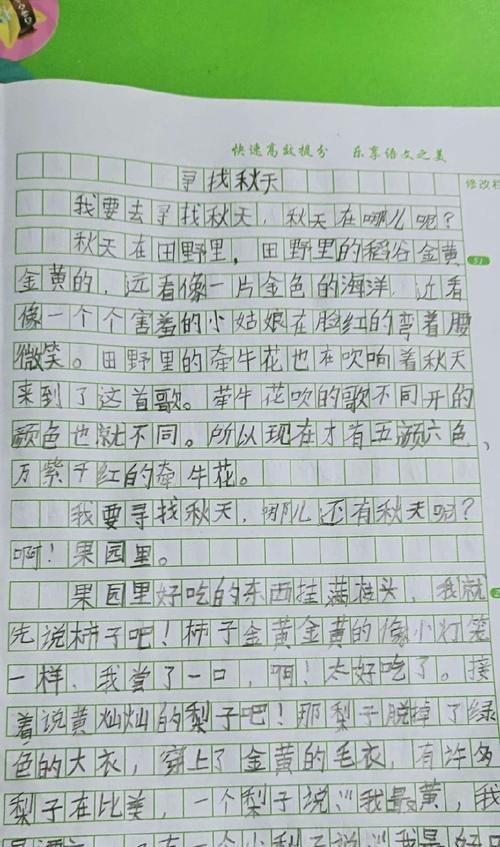 快速高效提分 乐享语文之美
修改栏
寻找秋天
我要去寻找秋天，秋天在哪儿呢？
秋天在田野里，田野里的稻谷金黄
金黄的，远看像一片金色的海洋，近看
像一个个害羞的小姑娘在脸红的弯着腰
微笑。田野里的牵牛花也在吹响着秋天
来到了这首歌。牵牛花吹的歌不同开的
颜色也就不同。所以现在才有五颜六色，
万紫千红的牵牛花。
我要寻找秋天，哪儿还有秋天呢？
啊！果园里。
果园里好吃的东西挂满枝头，我就
先说柿子吧！柿子金黄金黄的像小灯笼
一样，我尝了一口，啊！太好吃了。接
着说黄灿灿的梨子吧！那梨子脱掉了绿
色的大衣，穿上了金黄的毛衣，有许多
梨子在比美，一个梨子说：“我最黄，我
一个小梨子说：“我最好